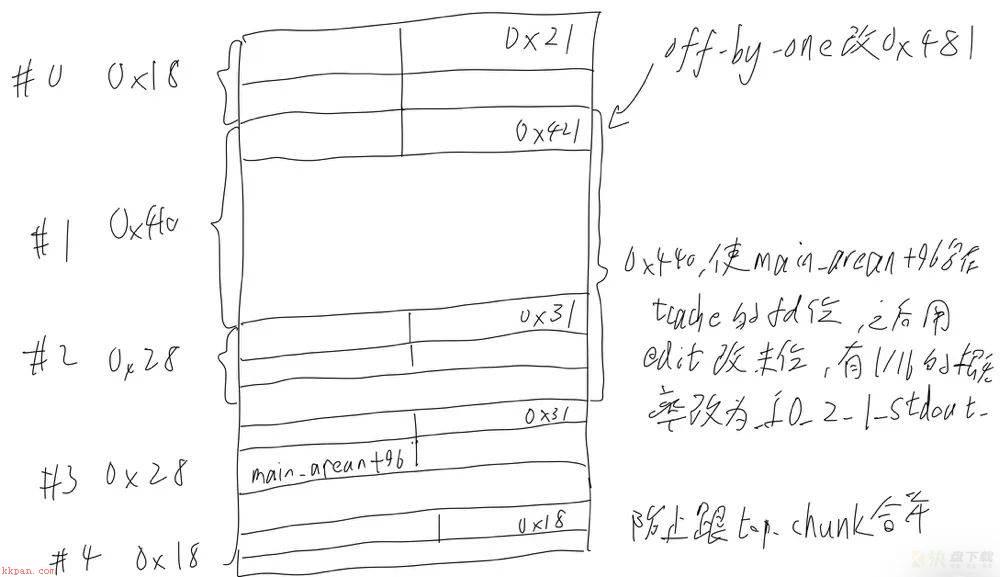 #0 0x18
0x21
off-by-one改0x481
0x421
#1 0x410
0x440,使main_arean+96落在
tcache的fd位,之后用
edit改末位,有1/16的概
率改为_IO_2_1_stdout_
0x31
#2 0x28
0x31
main_arean+96
#3 0x28
0x18
防止跟top_chunk合并
#4 0x18
kkpan.com
快盘下载